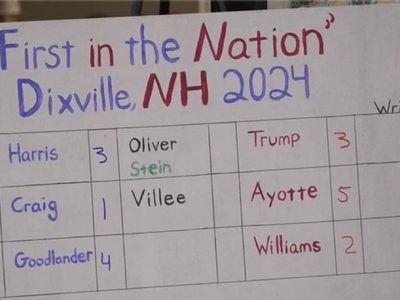 First in the Nation"
Dixville, NH 2024
Wri
Harris 3 Oliver Trump 3
Stein
Craig 1 Villee Ayotte 5
Goodlander 4 Williams 2